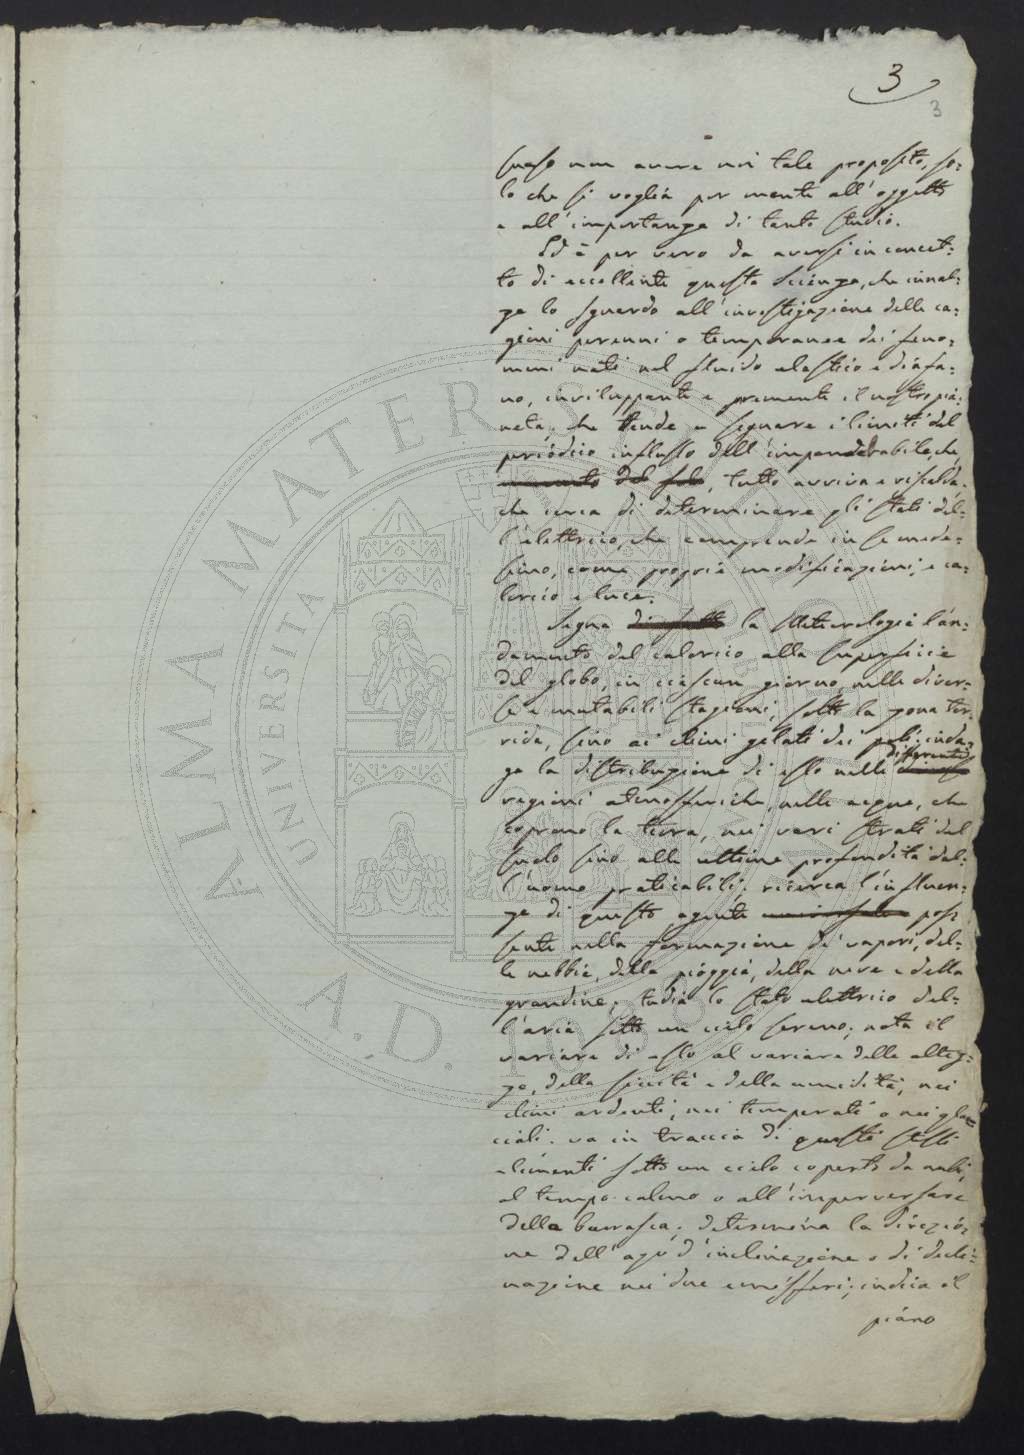 3
3
suaso non avere noi tale proposito, so-
lo che si voglia por mente all'oggetto
e all'importanza di tanto studio.
Ed è per vero da aversi in concet-
to di eccellente questa Scienza, che innal-
za lo sguardo all'investigazione delle ca-
gioni perenni o temporanee dei feno-
meni nati nel fluido elastico e diafa-
no, inviluppante e premente il nostro pia-
neta; che tende a segnare i limiti del
periodico influsso dell'imponderabile, che,
del sole, tutto avviva e riscalda;
che cerca di determinare gli stati del-
l'elettrico, che comprende in se mede-
simo, come proprie modificazioni, e ca-
lorico e luce.
Segna di fatto la Meteorologia l'an-
damento del calorico alla superficie
del globo, in ciascun giorno, nelle diver-
se e mutabili stagioni, sotto la zona tor-
rida, sino ai climi gelati dei poli: inda-
differenti
ga la distribuzione di esso nelle
regioni atmosferiche, nelle acque, che
coprono la terra, nei vari strati del
suolo sino alle ultime profondità dal-
l'uomo praticabili; ricerca l'influen-
za di questo agente universale pos-
sente nella formazione de' vapori, del-
le nebbie, della pioggia, della neve e della
grandine; studia lo stato elettrico del-
l'aria sotto un cielo sereno; nota il
variare di esso al variare delle altez-
ze, della siccità e della umidità, nei
climi ardenti, nei temperati o nei gla-
ciali: va in traccia di questi stessi
elementi sotto un cielo coperto da nubi,
al tempo calmo o all'imperversare
della burrasca; determina la direzio-
ne dell'ago d'inclinazione o di decli-
nazione nei due emisferi; indica il
piano
ALMA MATER STUDIORUM
UNIVERSITA
A.D. 1088